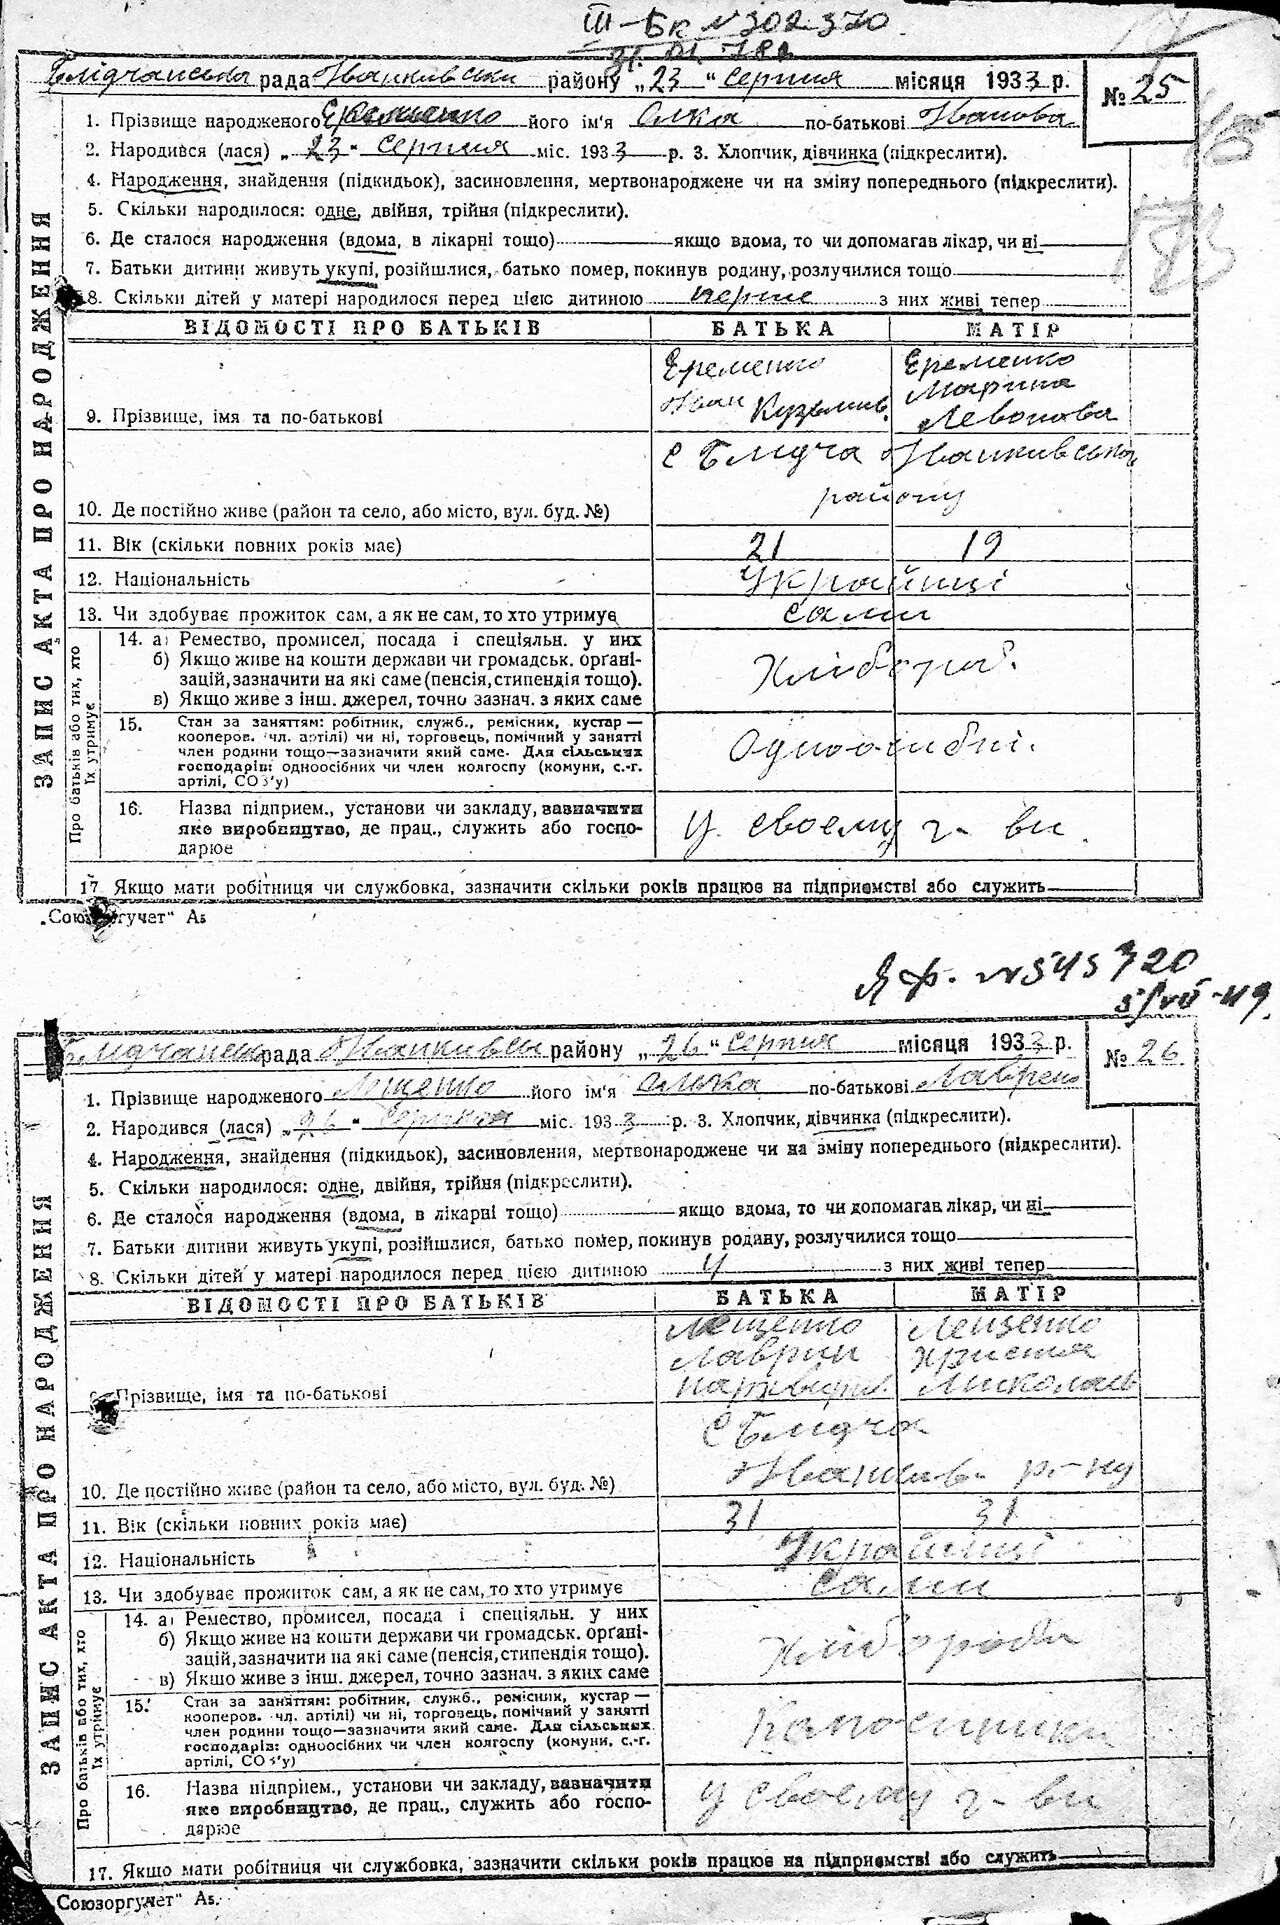 III-БК № 302370
Блідчанська рада Іванківськ району „23" серпня місяця 1933 р.
№ 25
1. Прізвище народженого Єременко його ім'я Олка по-батькові Іванова
2. Народився (лася) „23" серпня міс. 1933 р. 3. Хлопчик, дівчинка (підкреслити).
4. Народження, знайдення (підкидьок), засиновлення, мертвонароджене чи на зміну попереднього (підкреслити).
5. Скільки народилося: одне, двійня, трійня (підкреслити).
6. Де сталося народження (вдома, в лікарні тощо) якщо вдома, то чи допомагав лікар, чи ні
7. Батьки дитини живуть укупі, розійшлися, батько помер, покинув родину, розлучилися тощо
8. Скільки дітей у матері народилося перед цією дитиною перше з них живі тепер
ЗАПИС АКТА ПРО НАРОДЖЕННЯ
ВІДОМОСТІ ПРО БАТЬКІВ БАТЬКА МАТІР
9. Прізвище, імя та по-батькові
Єременко Иван Кузьмив.
Єременко Марина Левонова
10. Де постійно живе (район та село, або місто, вул. буд. №)
с Блидча Иванкивського району
11. Вік (скільки повних років має) 21 19
12. Національність Украйинці
13. Чи здобуває прожиток сам, а як не сам, то хто утримує сами
Про батьків або тих, хто їх утримує
14. а) Ремество, промисел, посада і спеціяльн. у них
б) Якщо живе на кошти держави чи громадськ. органі-
зацій, зазначити на які саме (пенсія, стипендія тощо).
в) Якщо живе з інш. джерел, точно зазнач. з яких саме
Хлібороб.
15. Стан за заняттям: робітник, служб., ремісник, кустар—
кооперов. чл. артілі) чи ні, торговець, помічний у занятті
член родини тощо—зазначити який саме. Для сільських
господарів: одноосібних чи член колгоспу (комуни, с.-г.
артілі, СОЗ'у)
Одноосибні.
16. Назва підприєм., установи чи закладу, зазначити
яке виробництво, де прац., служить або госпо-
дарює
у своему г-ви.
17 Якщо мати робітниця чи службовка, зазначити скільки років працює на підприємстві або служить
„Союзоргучет" А5
Яф. №545720
5/VII-49.
Блидчанськ рада Иванкивськ району „26" серпня місяця 1933 р.
№ 26
1. Прізвище народженого Лещенко його ім'я Олька по-батькові Лаврено
2. Народився (лася) „26" серпня міс. 1933 р. 3. Хлопчик, дівчинка (підкреслити).
4. Народження, знайдення (підкидьок), засиновлення, мертвонароджене чи на зміну попереднього (підкреслити).
5. Скільки народилося: одне, двійня, трійня (підкреслити).
6. Де сталося народження (вдома, в лікарні тощо) якщо вдома, то чи допомагав лікар, чи ні
7. Батьки дитини живуть укупі, розійшлися, батько помер, покинув родину, розлучилися тощо
8. Скільки дітей у матері народилося перед цією дитиною 4 з них живі тепер
ЗАПИС АКТА ПРО НАРОДЖЕННЯ
ВІДОМОСТІ ПРО БАТЬКІВ БАТЬКА МАТІР
Прізвище, імя та по-батькові
Лещенко Лаврин
Лещенко Христя Миколаїв
10. Де постійно живе (район та село, або місто, вул. буд. №)
с Блидча
Иванкив- р-ну
11. Вік (скільки повних років має) 31 31
12. Національність Украйинці
13. Чи здобуває прожиток сам, а як не сам, то хто утримує сами
Про батьків або тих, хто їх утримує
14. а) Ремество, промисел, посада і спеціяльн. у них
б) Якщо живе на кошти держави чи громадськ. органі-
зацій, зазначити на які саме (пенсія, стипендія тощо).
в) Якщо живе з інш. джерел, точно зазнач. з яких саме
Хлібороби
15. Стан за заняттям: робітник, служб., ремісник, кустар—
кооперов. чл. артілі) чи ні, торговець, помічний у занятті
член родини тощо—зазначити який саме. Для сільських
господарів: одноосібних чи член колгоспу (комуни, с.-г.
артілі, СОЗ'у)
16. Назва підприєм., установи чи закладу, зазначити
яке виробництво, де прац., служить або госпо-
дарює
у своему г-ви
17. Якщо мати робітниця чи службовка, зазначити скільки років працює на підприємстві або служить
Союзоргучет" А5.